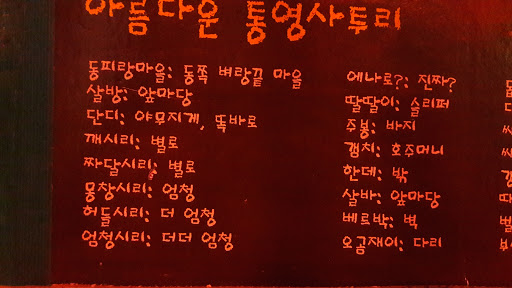 아름다운 통영사투리
동피랑마을: 동쪽 벼랑끝 마을
살방: 앞마당
단디: 야무지게, 똑바로
깨시리: 별로
짜달시리: 별로
몽창시리: 엄청
허들시리: 더 엄청
엄청시리: 더더 엄청
에나로?: 진짜?
딸딸이: 슬리퍼
주봉: 바지
갬치: 호주머니
한데: 밖
살바: 앞마당
베르박: 벽
오금재이: 다리